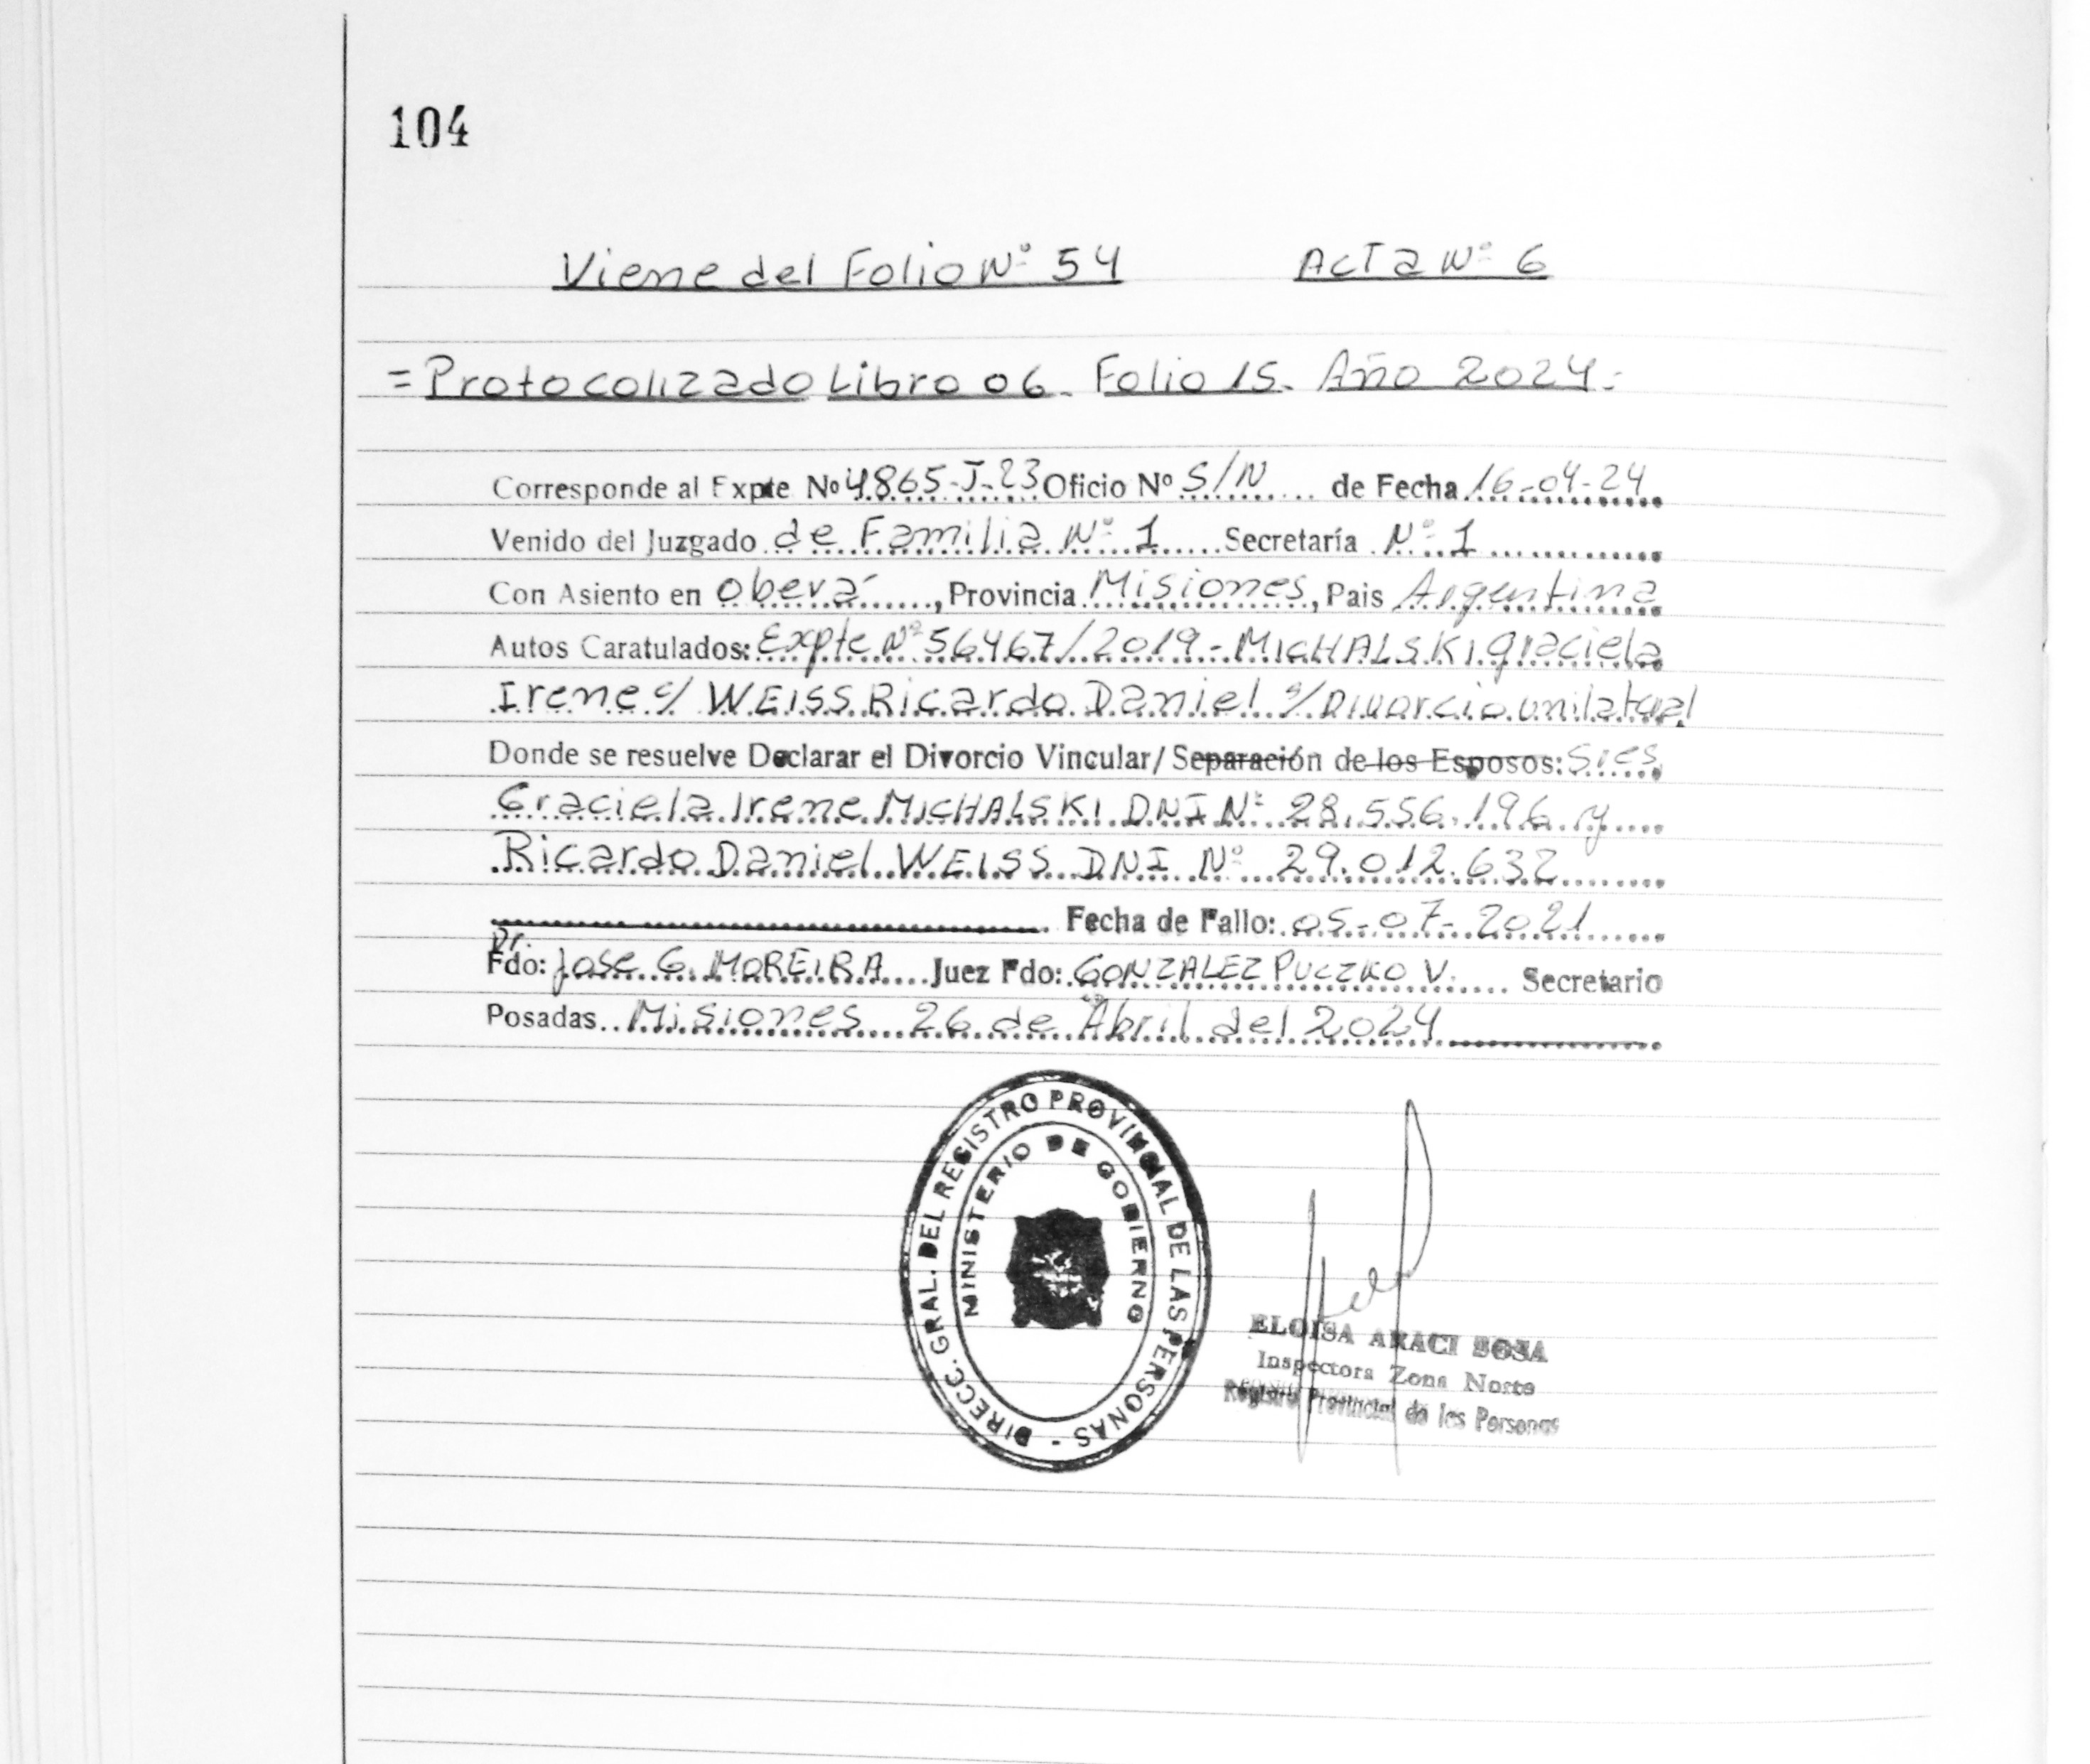 104
Viene del Folio Nº 54 Acta Nº 6
= Protocolizado Libro 06. Folio 15. Año 2024.
Corresponde al Expte Nº 4865-J-23 Oficio Nº S/N de Fecha 16-04-24
Venido del Juzgado de Familia Nº 1 Secretaría Nº 1
Con Asiento en oberá, Provincia Misiones, Pais Argentina
Autos Caratulados: Expte Nº 56467/2019.- MICHALSKI graciela
Irene c/ WEISS Ricardo Daniel s/Divorcio unilateral
Donde se resuelve Declarar el Divorcio Vincular/ Separación de los Esposos: Sres
Graciela Irene MICHALSKI DNI Nº 28.556.196 y
Ricardo Daniel WEISS DNI Nº 29.012.632
Fecha de Fallo: 05-07-2021
Dr.
Fdo: Jose G. MOREIRA Juez Fdo: GONZALEZ PUCZKO V. Secretario
Posadas Misiones 26 de Abril del 2024
DIRECC. GRAL. DEL REGISTRO PROVINCIAL DE LAS PERSONAS -
MINISTERIO DE GOBIERNO
ELOISA ARACI SOSA
Inspectora Zona Norte
Registro Provincial de las Personas